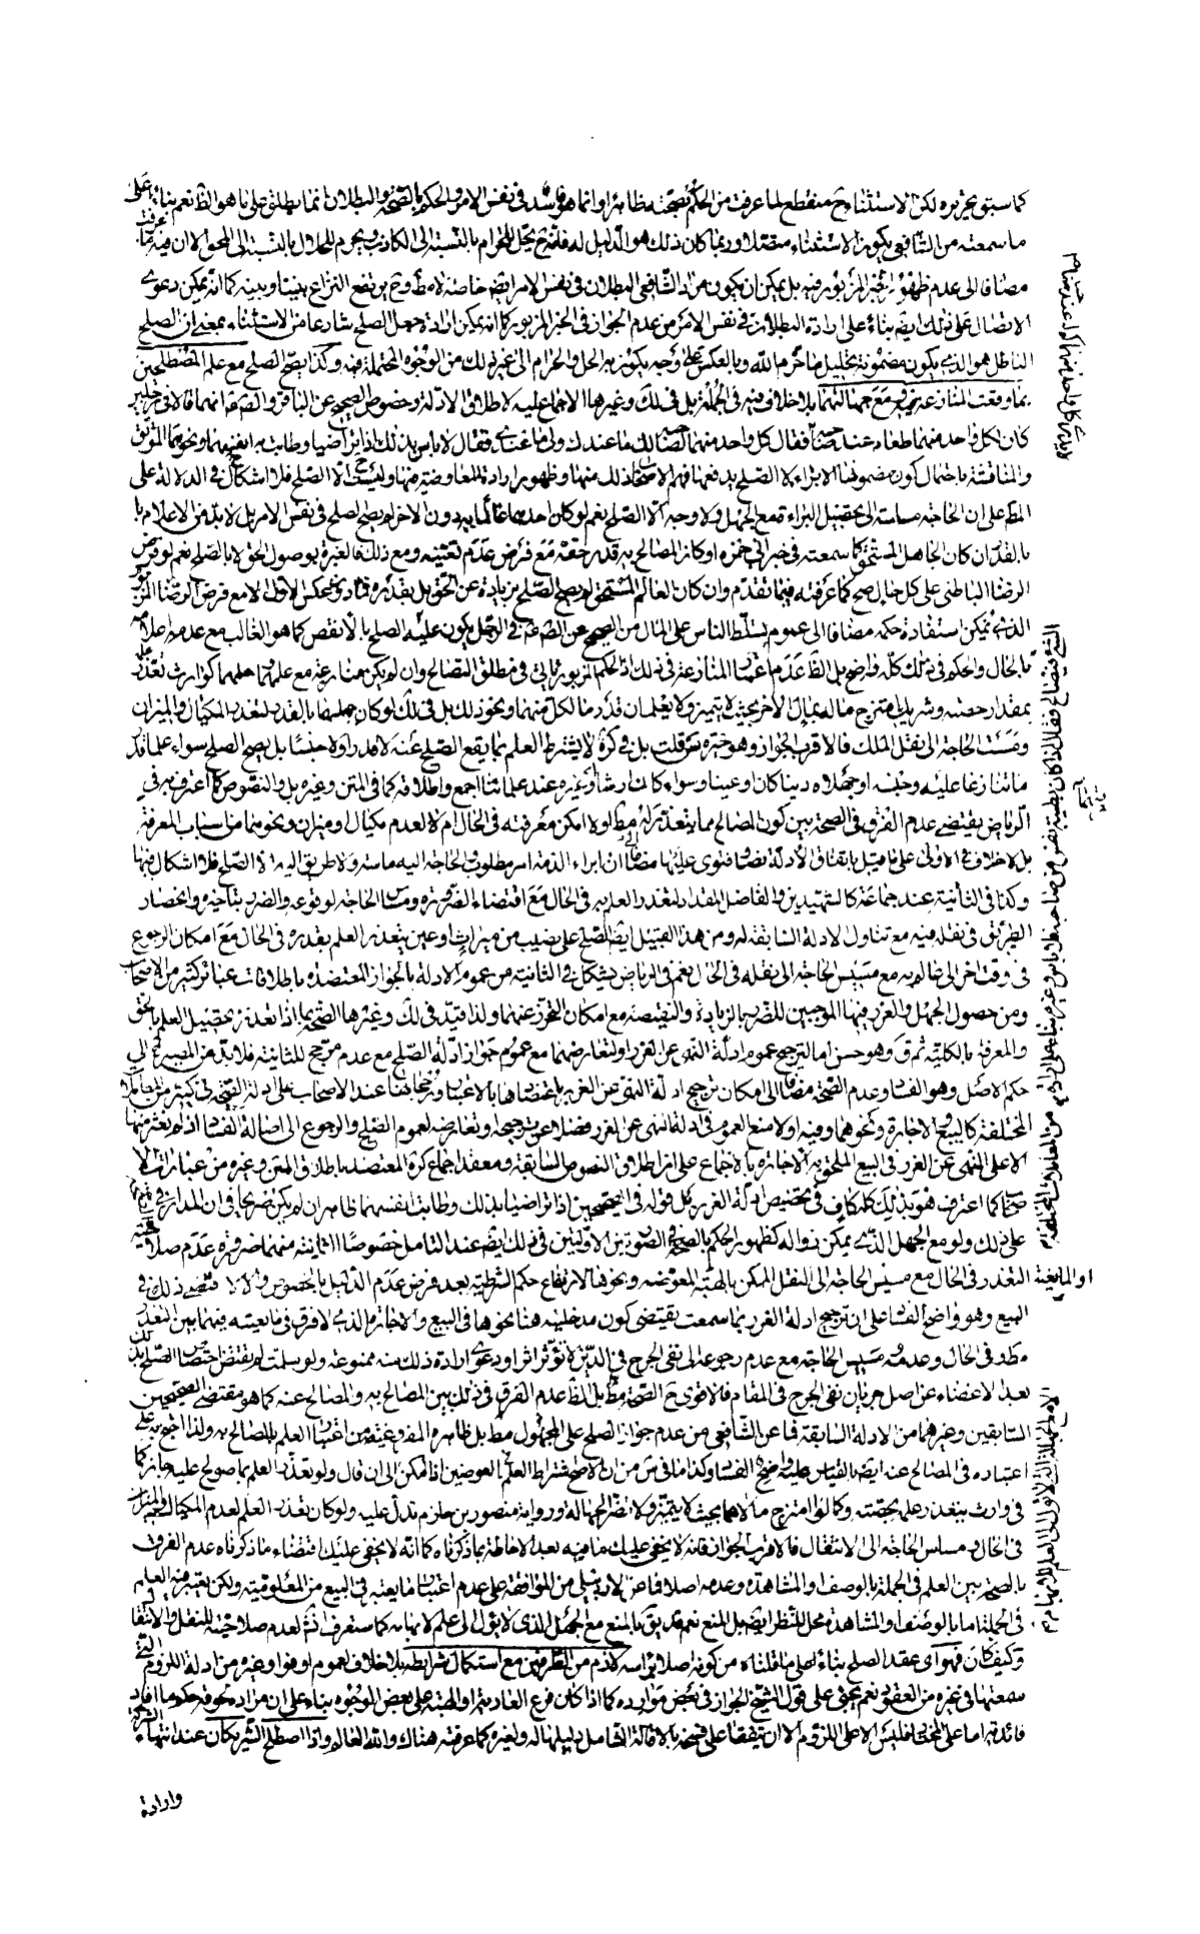 كما سبق تحريره لكن الاستثناء ح منقطع لما عرفت من الحكم بصحته ظاهرا وانما هو فاسد في نفس الامر والحكم بالصحة والبطلان انما يطلق على ما هو الظ نعم بناء على
ما سمعته من الشافعي يكون الاستثناء متصلا وربما كان ذلك هو الدليل له فانه ح يحل الحرام بالنسبة الى الكاذب ويحرم الحلال بالنسبة الى المحق الا ان فيه ما عرفت
مضافا الى عدم ظهور الخبر المزبور فيه بل يمكن ان يكون مراد الشافعي البطلان في نفس الامر ايضا خاصة لا مط وح يرتفع النزاع بيننا وبينه كما انه يمكن دعوى
الاتصال على ذلك ايضا بناء على ارادة البطلان في نفس الامر من عدم الجواز في الخبر المزبور كما انه يمكن ارادة جعل الصلح شارعا من الاستثناء بمعنى ان الصلح
الباطل هو الذي يكون مضمونه تحليل ما حرم الله وبالعكس على وجه يكون به الحل والحرام الى غير ذلك من الوجوه المحتملة فيه وكذا يصح الصلح مع علم المصطلحين
بما وقعت المنازعة به ومع جهالتهما بلا خلاف فيه في الجملة بل في لك وغيرها الاجماع عليه لاطلاق الادلة وخصوص الصحيح عن الباقر والصادق انهما قالا في رجلين
كان لكل واحد منهما طعام عند صاحبه فقال كل واحد منهما لصاحبه لك ما عندك ولي ما عندي فقال لا باس بذلك اذا تراضيا وطابت به انفسهما ونحوهما الموثق
والمناقشة باحتمال كون مضمونها الابراء لا الصلح يدفعها فهم الاصحاب ذلك منها وظهور ارادة المعاوضة منها وليست ح الا الصلح فلا اشكال ح في الدلالة على
المط على ان الحاجة ماسة الى تحصيل البراءة مع الجهل ولا وجه الا الصلح نعم لو كان احدهما عالما به دون الاخر لم يصح الصلح في نفس الامر بل لابد من الاعلام بالقدر
ان كان الجاهل المستحق كما سمعته في خبر ابي حمزة او كان المصالح به قدر حقه مع فرض عدم تعيينه ومع ذلك فالعبرة بوصول الحق لا بالصلح نعم لو فرض
الرضا الباطني على كل حال صح كما عرفته فيما تقدم وان كان العالم المستحق لم يصح الصلح بزيادة عن الحق بل بقدره فما دون عكس الاول الا مع فرض الرضا المزبور
الذي يمكن استفادة حكمه مضافا الى عموم تسلط الناس على المال من الصحيح عن الصادق في الرجل يكون عليه
بالحال والحكم في ذلك كله واضح بل الظ عدم اعتبار المنازعة في ذلك
بمقدار حصته وشريك امتزج ماله بمال الاخر بحيث لا يتميز ولا يعلمان قدر ما لكل منهما ونحو ذلك بل في لك لو كان جهلهما بالقدر لتعذر المكيال والميزان
ومست الحاجة الى نقل الملك فالاقرب الجواز وهو خيرة س قلت بل في كرة لا يشترط العلم بما يقع الصلح عنه لا قدرا ولا جنسا بل يصح الصلح سواء علما قدر
ما تنازعا عليه وجنسه او جهلاه دينا كان او عينا وسواء كان ارشا او غيره عند علمائنا اجمع واطلاقه كما في المتن وغيره بل والنصوص كما اعترف به في
الرياض يقتضي عدم الفرق في الصحة بين كون المصالح مما يتعذر معرفته مط او لا امكن معرفته في الحال ام لا لعدم مكيال او ميزان ونحوهما من اسباب المعرفة
بل لا خلاف في الاولى على ما قيل باتفاق الادلة نصا وفتوى عليها مضافا الى ان ابراء الذمة امر مطلوب والحاجة اليه ماسة ولا طريق اليه الا الصلح فلا اشكال فيها
وكذا في الثانية عند جماعة كالشهيدين والفاضل المقداد لتعذر العلم به في الحال مع اقتضاء الضرورة ومس الحاجة لوقوعه والضرر بتاخيره وانحصار
الطريق في نقله فيه مع تناول الادلة السابقة له ومن هذا القبيل ايضا الصلح على نصيب من ميراث او عين يتعذر العلم بقدره في الحال مع امكان الرجوع
في وقت اخر الى عالم به مع مسيس الحاجة الى نقله في الحال نعم في الرياض يشكل في الثانية من عموم الادلة بالجواز المعتضدة باطلاقات عبائر كثير من الاصحاب
ومن حصول الجهل والغرر فيها الموجبين للضرر بالزيادة والنقيصة مع امكان التحرز عنهما ولذا قيد في لك وغيرها الصحة بما اذا تعذر تحصيل العلم بالحق
والمعرفة بالكلية ثم ق وهو حسن اما لترجيح عموم ادلة النهى عن الغرر او لتعارضهما مع عموم جواز ادلة الصلح مع عدم مرجح للثانية فلابد من المصير ح الى
حكم الاصل وهو الفساد وعدم الصحة مضافا الى امكان ترجيح ادلة النهى عن الغرر باعتضادها بالاعتبار ورجحانها عند الاصحاب على ادلة الصحة في كثير من المعاملات
المختلفة كالبيع والاجارة ونحوهما وفيه اولا منع العموم في ادلة النهى عن الغرر فضلا عن ترجيحه او تعارضه لعموم الصلح والرجوع الى اصالة الفساد اذ لم نعثر منها
الا على النهى عن الغرر في البيع الملحق به الاجارة بالاجماع على ان اطلاق النصوص السابقة ومعقد اجماع كرة المعتضد باطلاق المتن وغيره من عبارات الاصحاب
كما اعترف هو بذلك كله كاف في تخصيص ادلة الغرر بل قوله في الصحيحين اذا تراضيا بذلك وطابت انفسهما ظاهر ان لم يكن صريحا في ان المدار في
على ذلك ولو مع الجهل الذي يمكن زواله كظهور الحكم بالصحة في الصورتين الاوليتين في ذلك ايضا عند التامل خصوصا الثانية منهما ضرورة عدم صلاحية
التعذر في الحال مع مسيس الحاجة الى النقل الممكن بالهبة المعوضة ونحوها لارتفاع حكم الشرطية بعد فرض عدم الدليل بالخصوص والا لاقتضى ذلك في
البيع وهو واضح الفساد على ان ترجيح ادلة الغرر بما سمعت يقتضي كون مدخليته هنا نحوها في البيع والاجارة الذي لا فرق في مانعيته فيهما بين التعذر
مط وفي الحال وعدمه ومسيس الحاجة مع عدم رجوعه الى نفي الحرج في الدين لا تؤثر اثرا ودعوى ارادة ذلك منه ممنوعة ولو سلمت لم تقتض اختصاص الصلح بذلك
بعد الاغضاء عن اصل جريان نفي الحرج في المقام فالاقوى ح الصحة مط بل الظ عدم الفرق في ذلك بين المصالح به والمصالح عنه كما هو مقتضى الصحيحين
السابقين وغيرهما من الادلة السابقة فما عن الشافعي من عدم جواز الصلح على المجهول مط بل ظاهره المفروغية من اعتبار العلم بالمصالح به ولذا احتج به على
اعتباره في المصالح عنه ايضا بالقياس عليه واضح الفساد وكذا ما في س من ان الاصح اشتراط العلم بالعوضين اذا امكن الى ان قال ولو تعذر العلم بما صولح عليه جاز كما
في وارث يتعذر علمه بحصته وكما لو امتزج مالاهما بحيث لا يتميز ولا تضر الجهالة ورواية منصور بن حازم تدل عليه ولو كان تعذر العلم لعدم المكيال والميزان
في الحال ومساس الحاجة الى الانتقال فالاقرب الجواز فانه لا يخفى عليك ما فيه بعد الاحاطة بما ذكرناه كما انه لا يخفى عليك اقتضاء ما ذكرناه عدم الفرق
بالصحة بين العلم في الجملة بالوصف او المشاهدة وعدمه اصلا فما عن
في الجملة اما بالوصف او المشاهدة محل للنظر ايضا بل المنع نعم قد يق بالمنع مع الجهل الذي لا يؤل الى علم
وكيف كان فهو اي عقد الصلح بناء على ما قلناه من كونه اصلا براسه لازم من الطرفين مع استكمال شرائطه بلا خلاف لعموم اوفوا وغيره من ادلة اللزوم التي
سمعتها في غيره من العقود نعم يجئ على قول الشيخ الجواز في بعض موارده كما اذا كان فرع العارية او الهبة على بعض الوجوه بناء على ان مراده لحوقه حكم ما افاد
فائدته اما على المختار فليس الا على اللزوم الا ان يتفقا على فسخه بالاقالة الشامل دليلها له ولغيره كما عرفته هناك والله العالم واذا اصطلح الشريكان عند انتهاء الشركة
وارادة